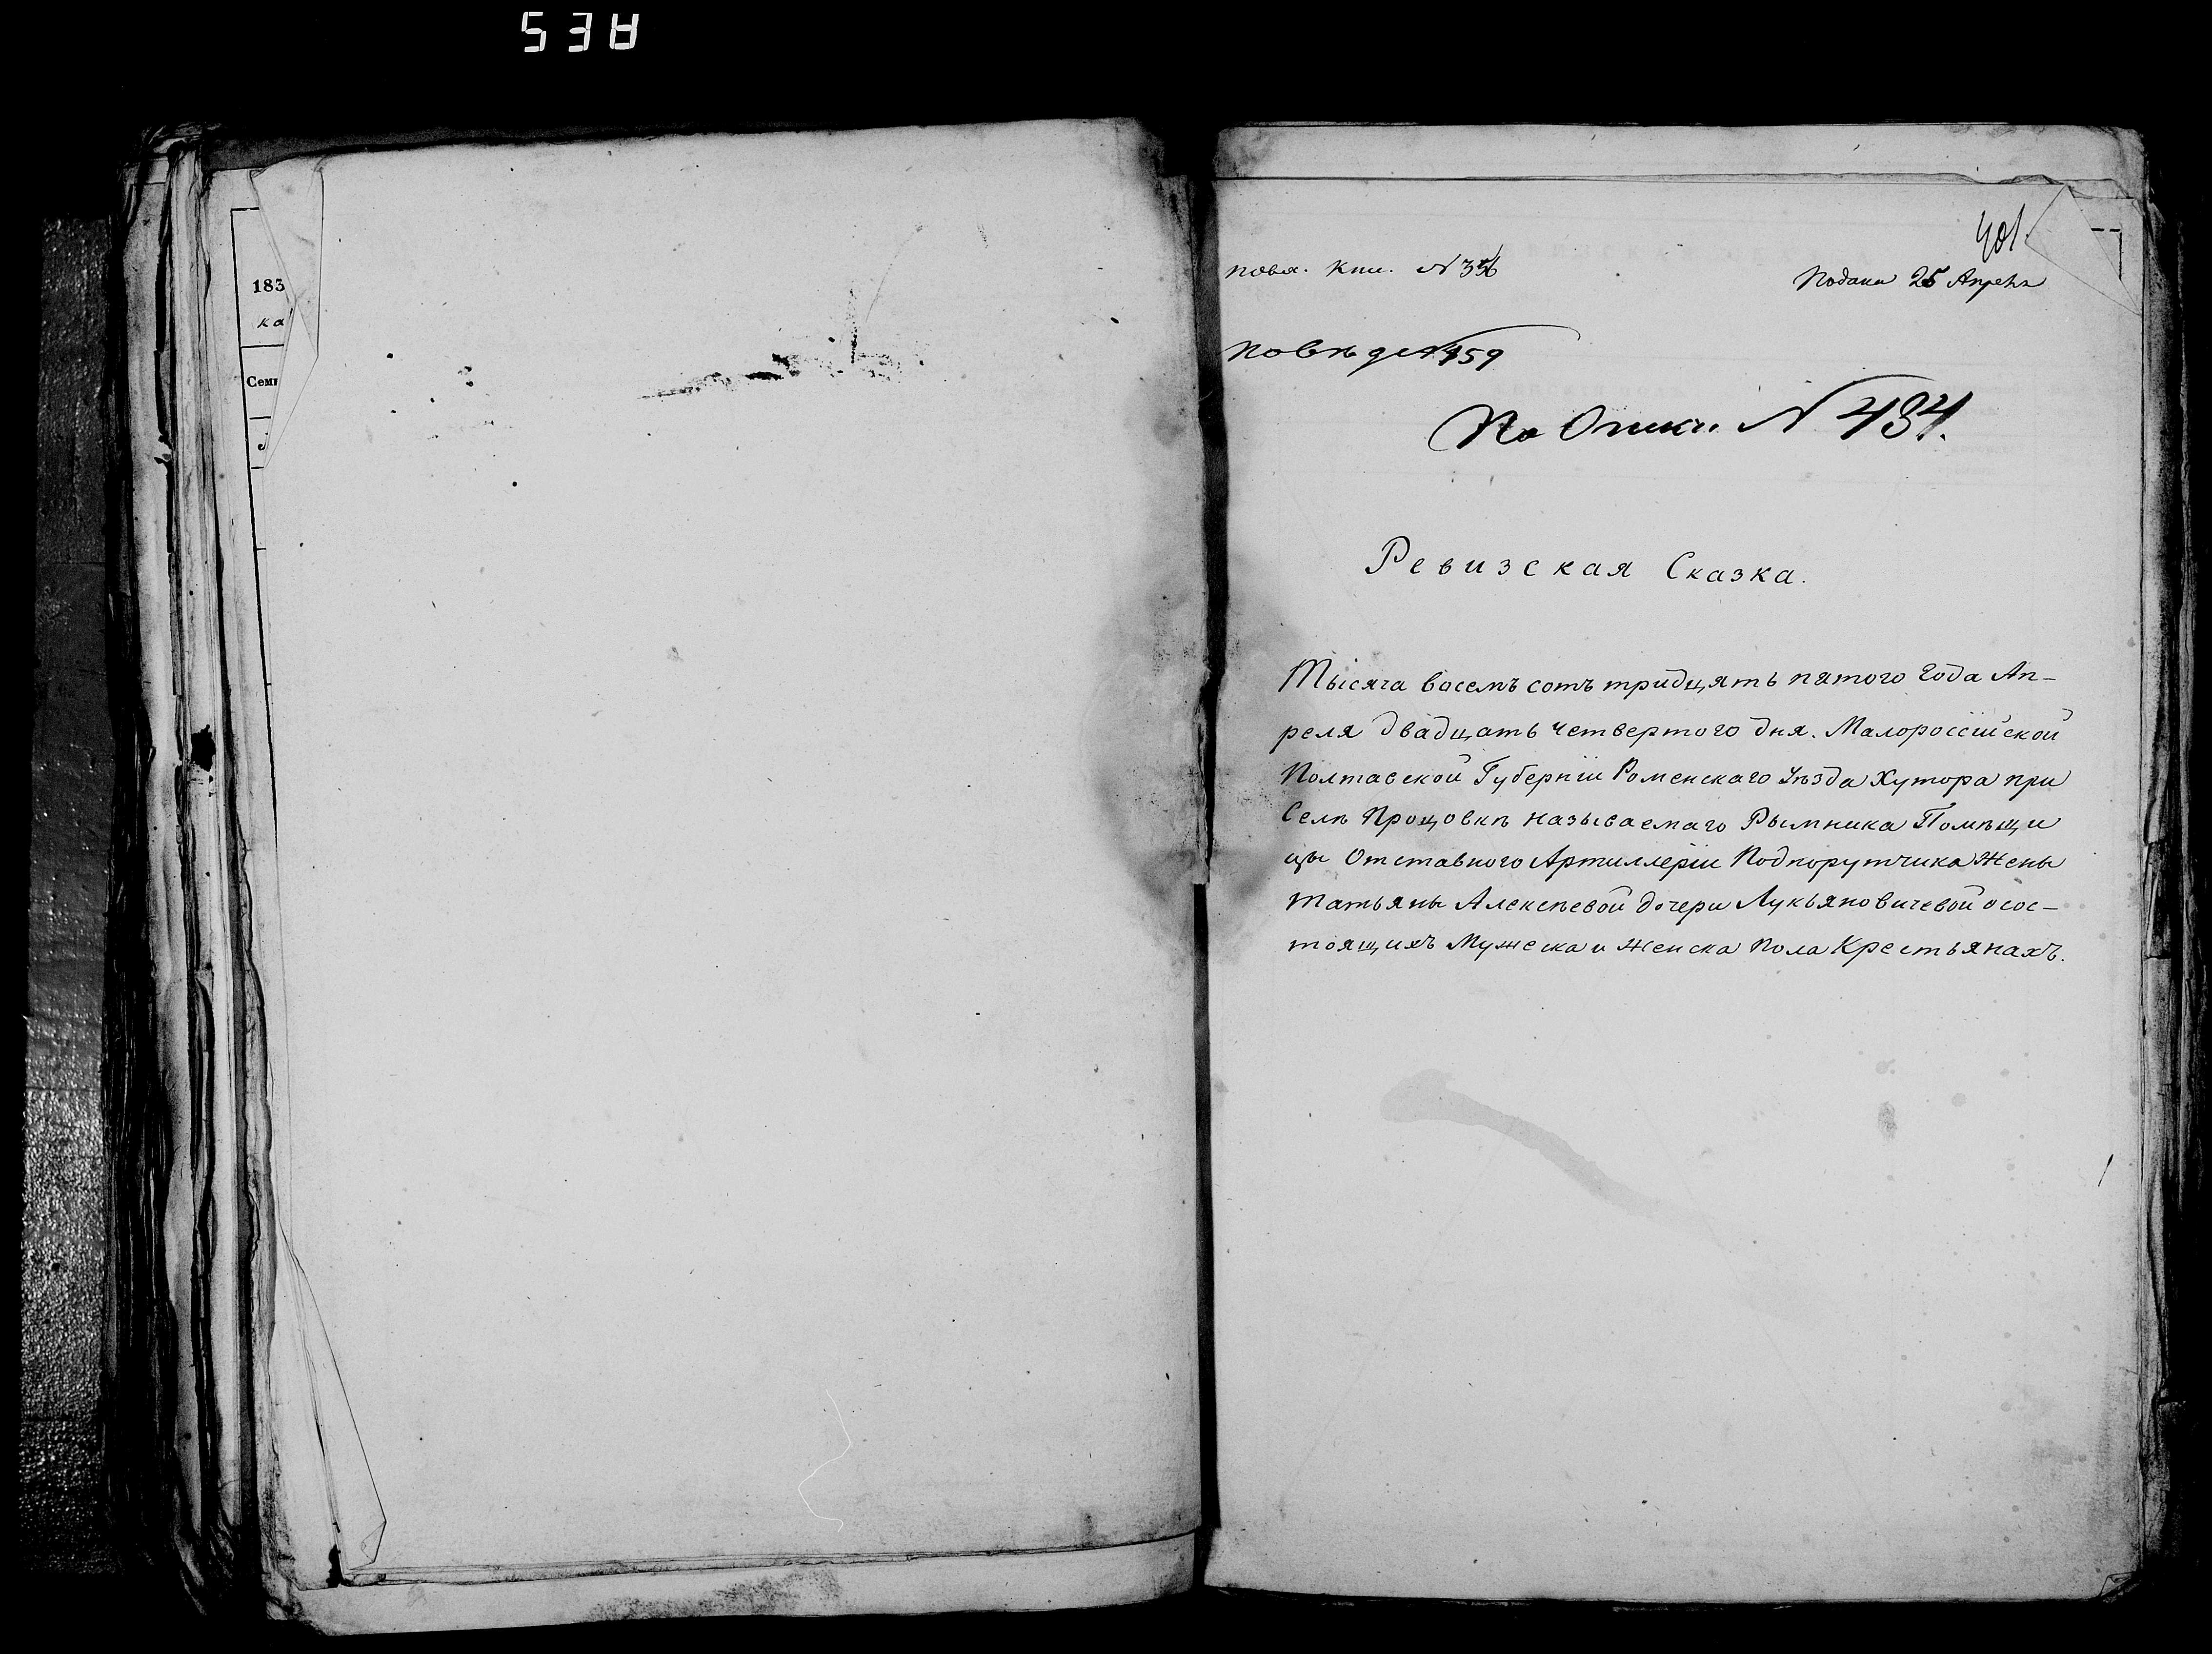 183
ка
Сем
401.
Подана 25 Апреля
по вх. Кни. N 356
N 459
По Описи. N 434.
Ревизская Сказка.
Тысяча восемъ сотъ тридцять пятого Года Ап-
реля двадцать Четвертого дня. Малороссійской
Полтавской Губерніи Роменскаго Уѣзда Хутора при
Селѣ Процовкѣ называемаго Рымника Помѣщи
цы Отставного Артиллеріи Подпорутчика Жены
Татьяны Алексѣевой дочери Лукьяновичевой о сос-
тоящихъ Мужеска и Женска Пола Крестьянахъ.